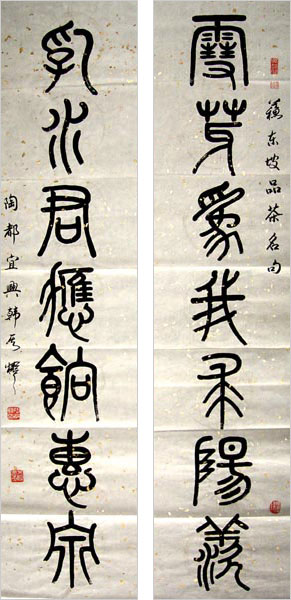 雪芽為我求陽羨
蘇東坡品茶名句
乳水君應餉惠泉
陶都宜興韓